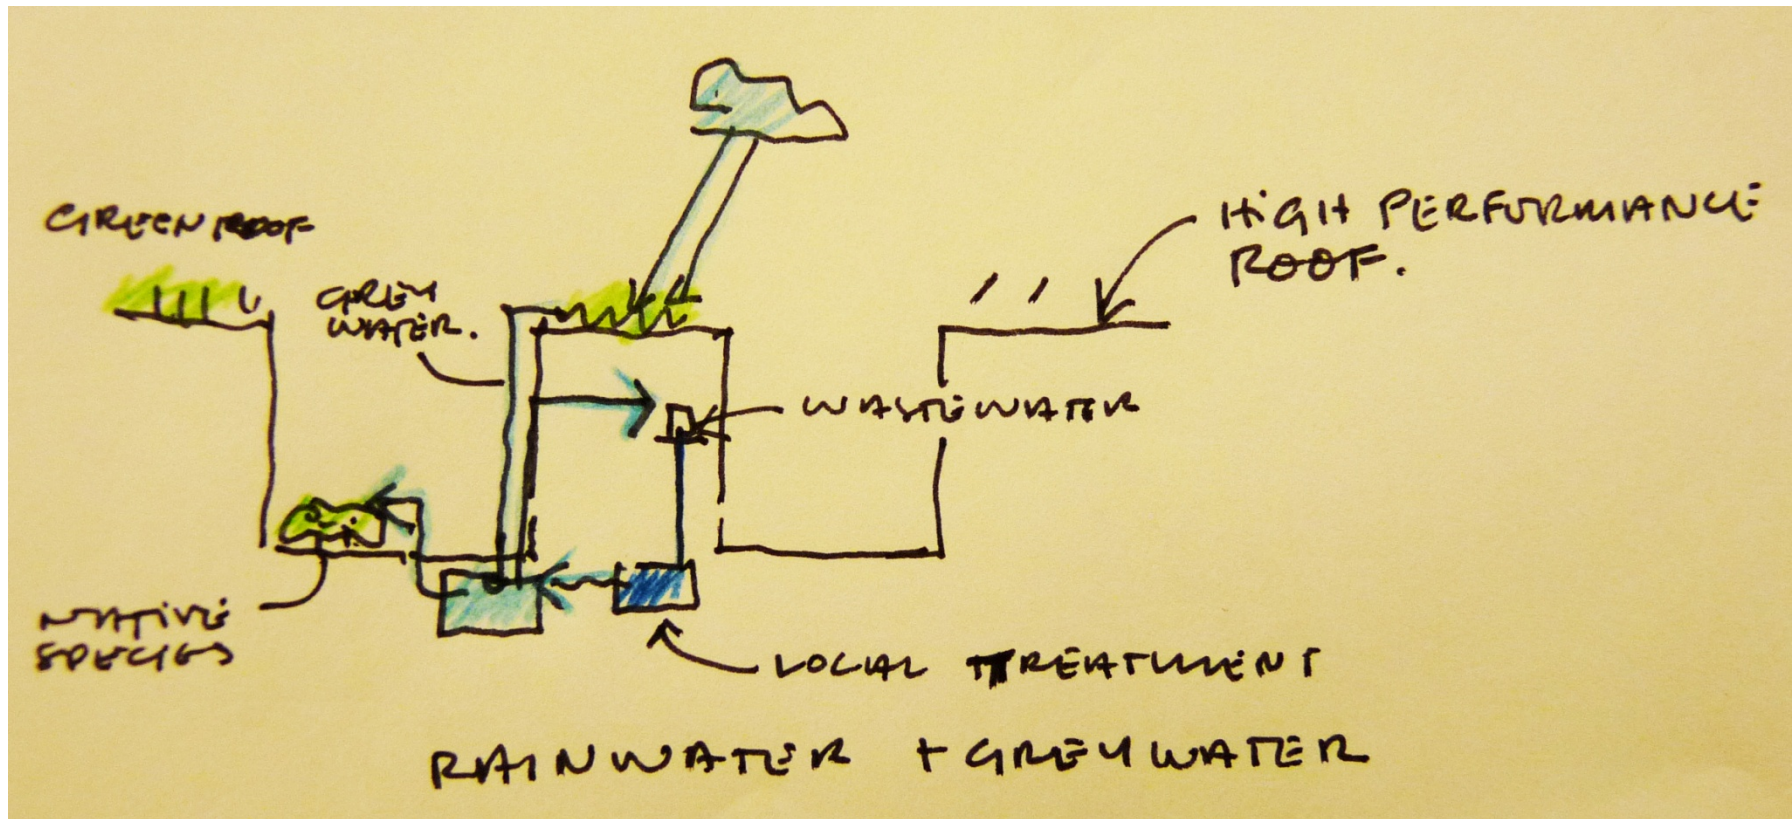 GREEN ROOF
GREY
WATER.
HIGH PERFORMANCE
ROOF.
WASTEWATER
NATIVE
SPECIES
LOCAL TREATMENT
RAINWATER + GREYWATER